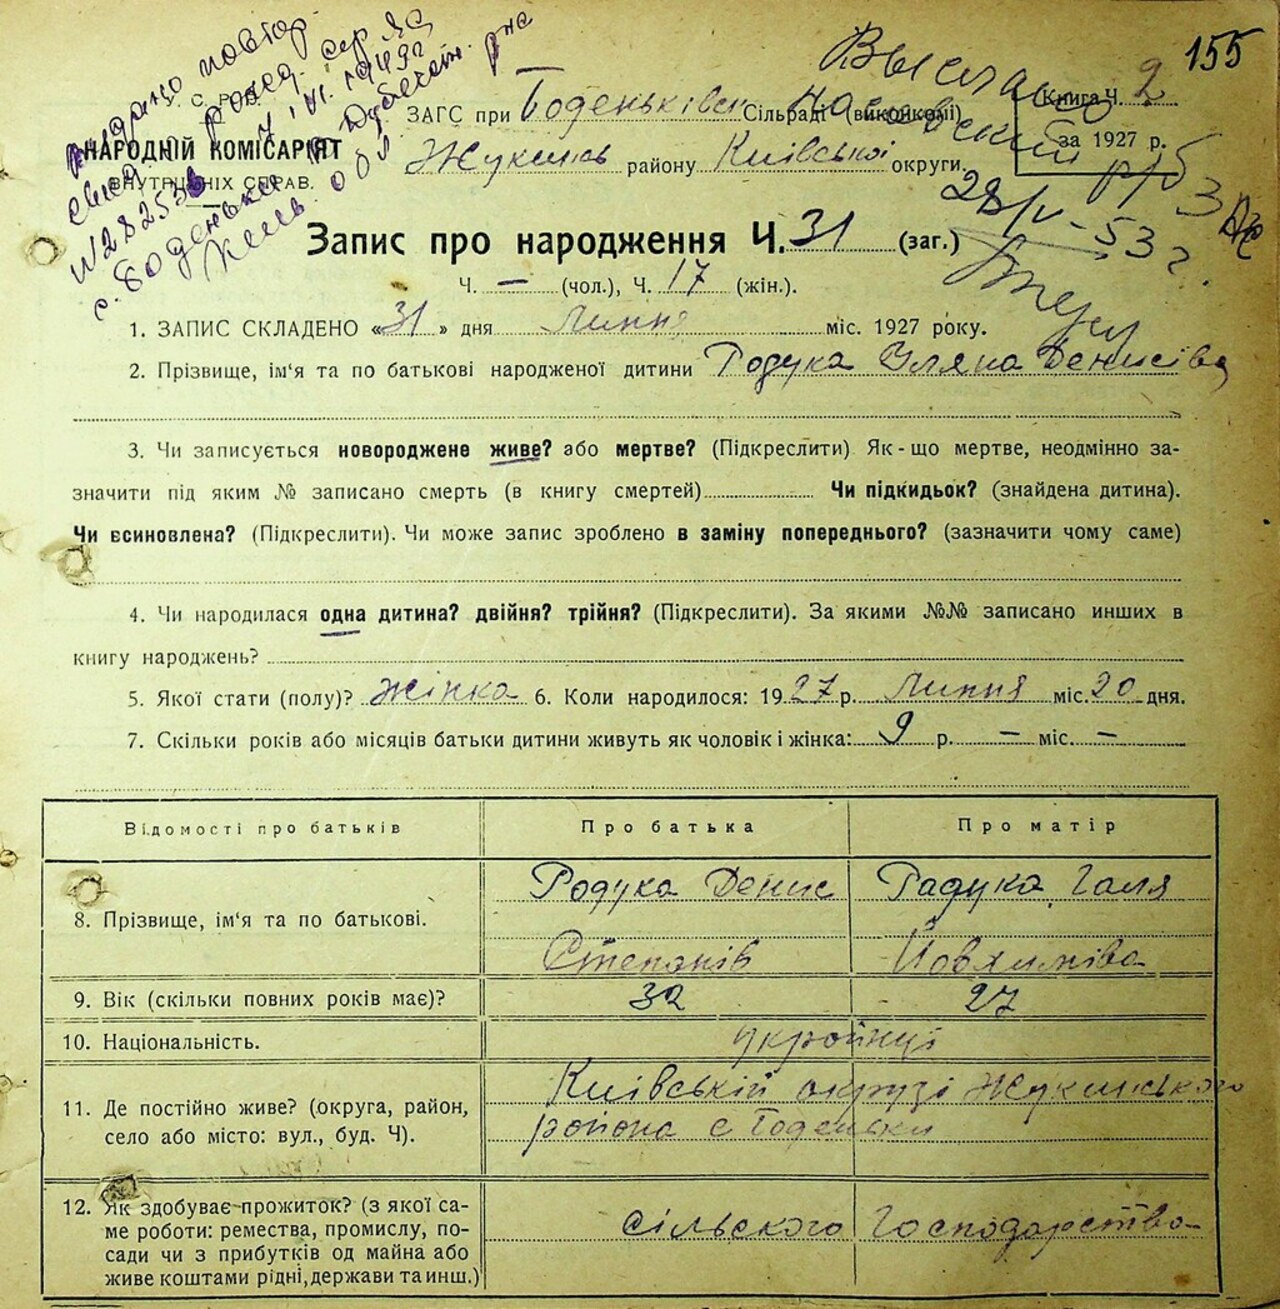 155
У. С. Р. Р.
НАРОДНІЙ КОМІСАРІЯТ
ВНУТРІШНІХ СПРАВ.
ЗАГС при Боденьківськ Сільраді (виконкомі)
Жукинськ району Київської округи.
Книга Ч. 2
за 1927 р.
Выслано
28/V-53 г.
с. Боденьки
Запис про народження Ч. 31 (заг.)
Ч. — (чол.), Ч. 17 (жін.).
1. ЗАПИС СКЛАДЕНО «31» дня Липня міс. 1927 року.
2. Прізвище, ім'я та по батькові народженої дитини Родука Уляна Денисіва
3. Чи записується новороджене живе? або мертве? (Підкреслити) Як-що мертве, неодмінно за-
значити під яким № записано смерть (в книгу смертей) Чи підкидьок? (знайдена дитина).
Чи всиновлена? (Підкреслити). Чи може запис зроблено в заміну попереднього? (зазначити чому саме)
4. Чи народилася одна дитина? двійня? трійня? (Підкреслити). За якими №№ записано инших в
книгу народжень?
5. Якої стати (полу)? Жінка 6. Коли народилося: 1927 р. Липня міс. 20 дня.
7. Скільки років або місяців батьки дитини живуть як чоловік і жінка: 9 р. — міс. —
Відомості про батьків Про батька Про матір
8. Прізвище, ім'я та по батькові. Родука Денис Радука Галя
Степанів Йовхиміва
9. Вік (скільки повних років має)? 32 27
10. Національність. українці
11. Де постійно живе? (округа, район,
село або місто: вул., буд. Ч). Київській округі Жукинського
района с Боденьки
12. Як здобуває прожиток? (з якої са-
ме роботи: ремества, промислу, по-
сади чи з прибутків од майна або
живе коштами рідні, держави та инш.) сільского Господарства